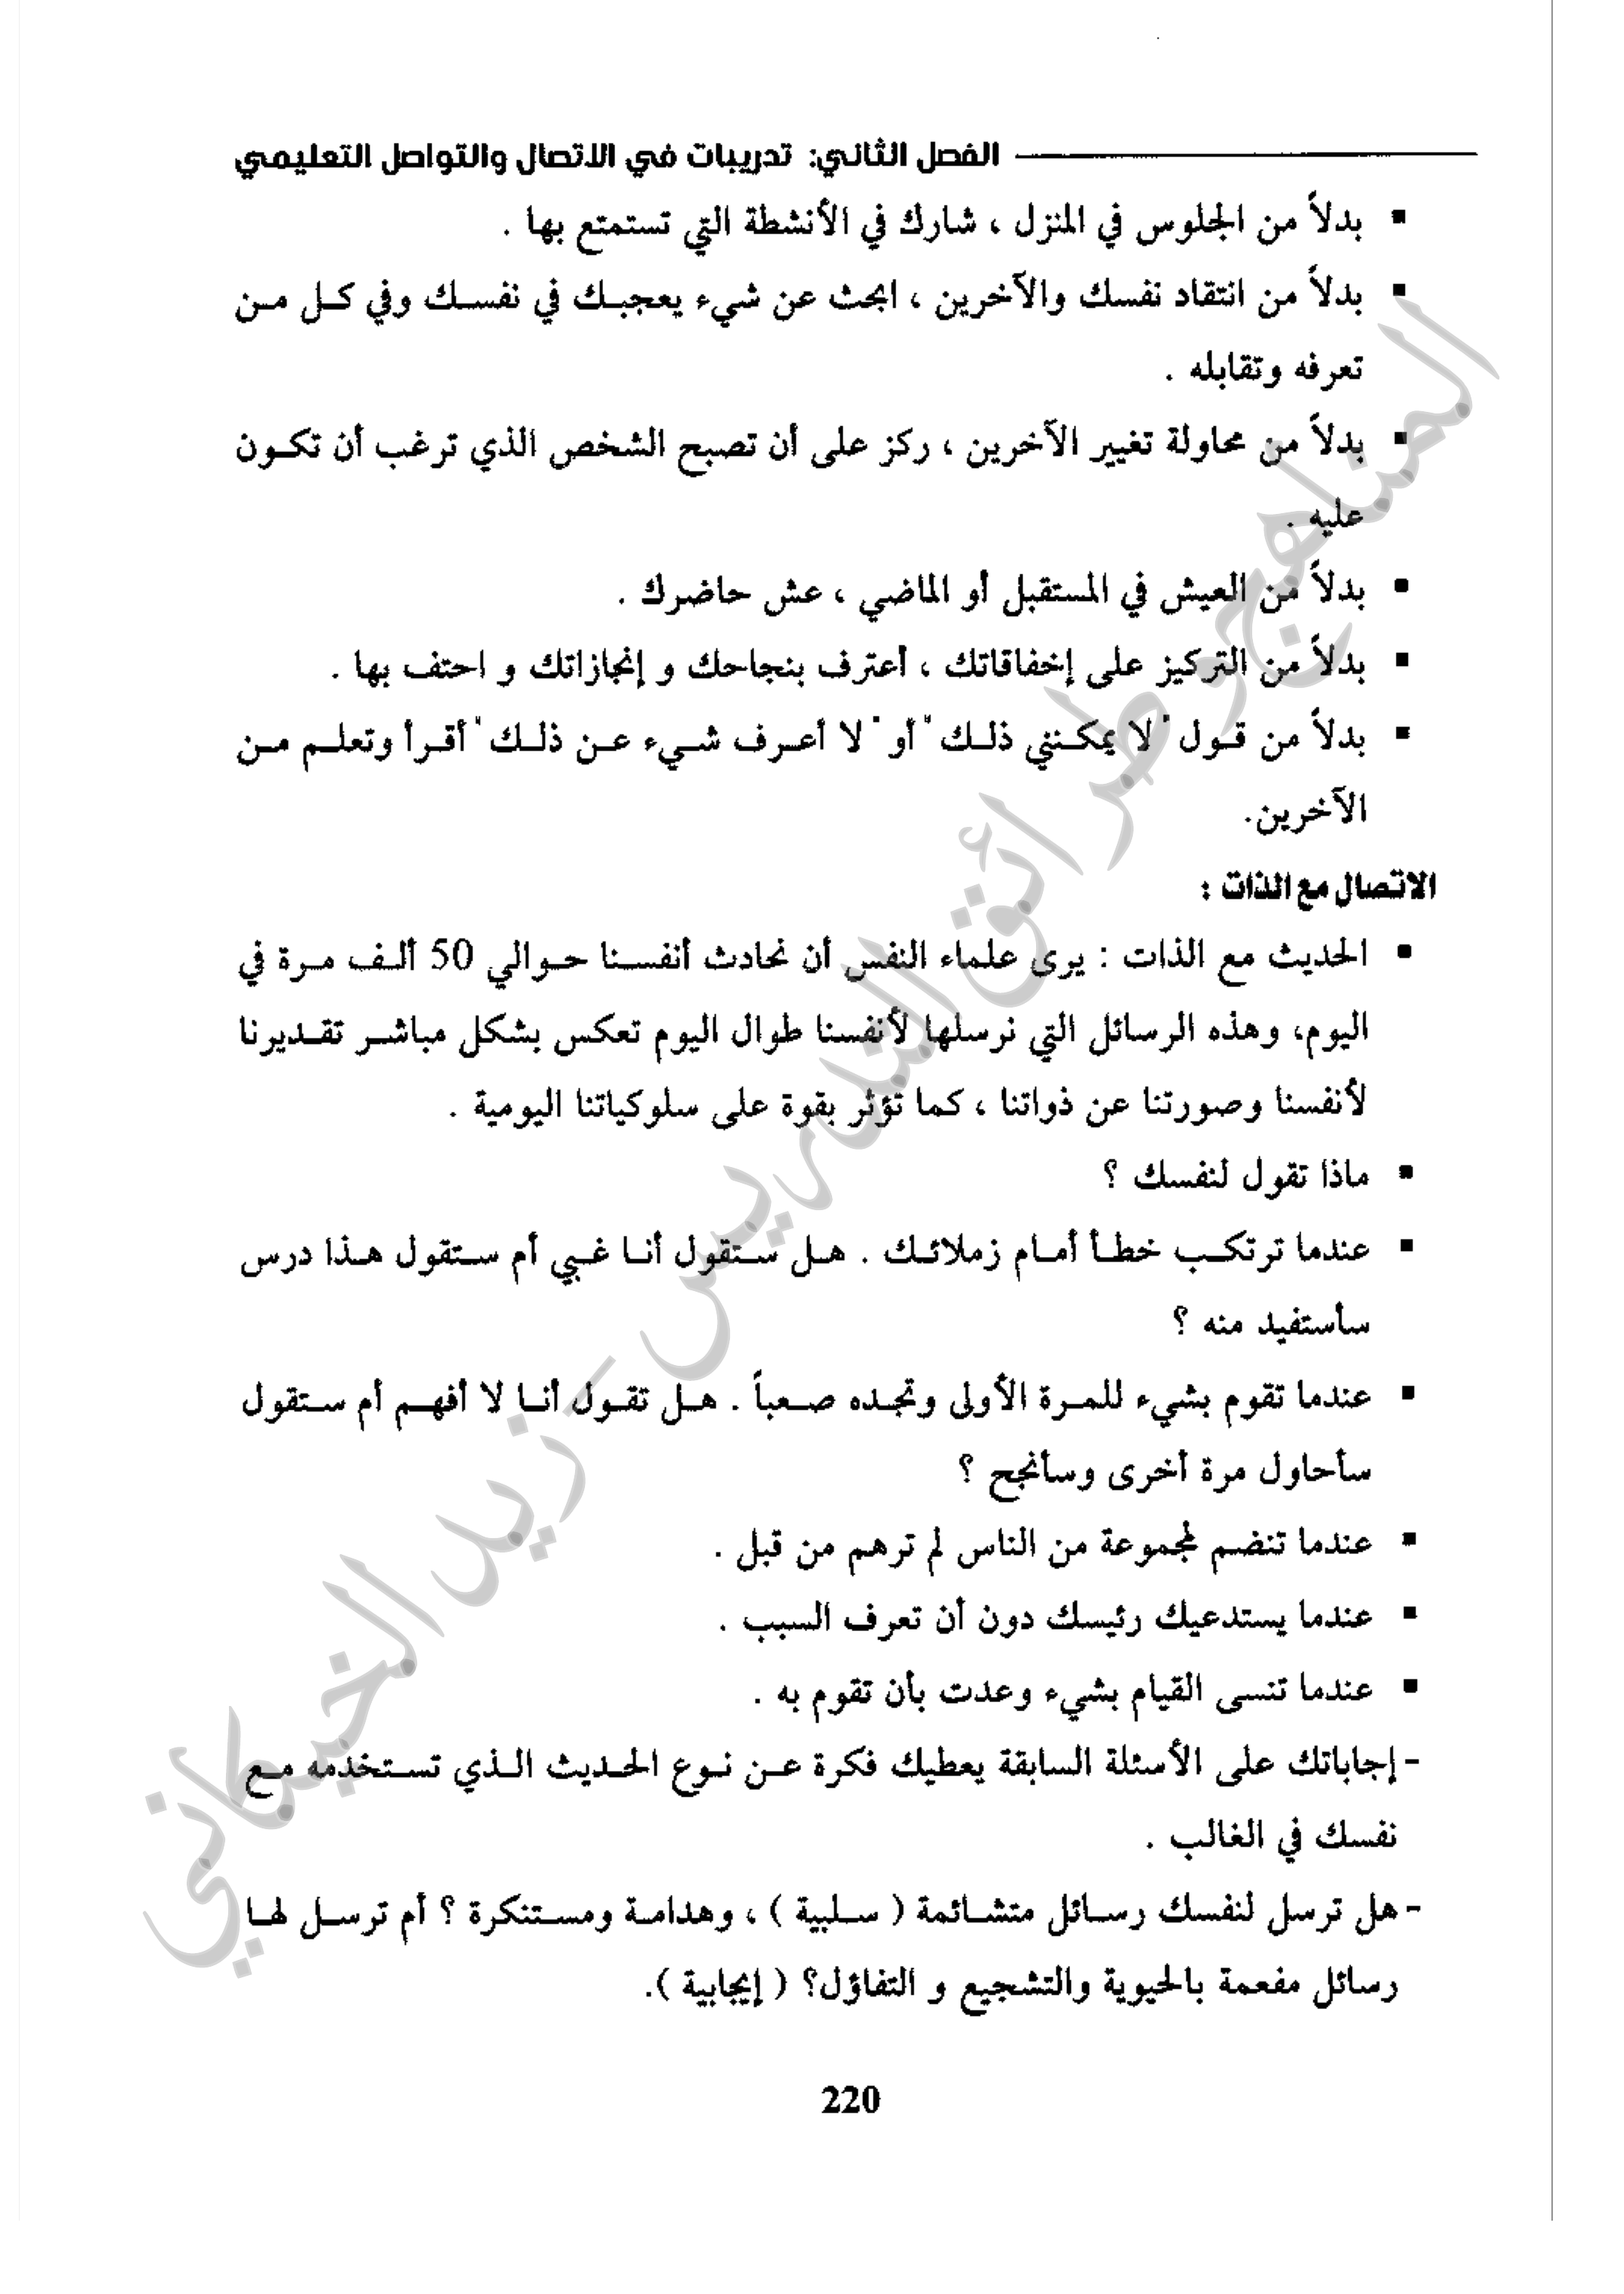 الفصل الثاني: تدريبات في الاتصال والتواصل التعليمي
▪ بدلاً من الجلوس في المنزل ، شارك في الأنشطة التي تستمتع بها .
▪ بدلاً من انتقاد نفسك والآخرين ، ابحث عن شيء يعجبك في نفسك وفي كل من
تعرفه وتقابله .
▪ بدلاً من محاولة تغيير الآخرين ، ركز على أن تصبح الشخص الذي ترغب أن تكون
عليه .
▪ بدلاً من العيش في المستقبل أو الماضي ، عش حاضرك .
▪ بدلاً من التركيز على إخفاقاتك ، أعترف بنجاحك و إنجازاتك و احتف بها .
▪ بدلاً من قول " لا يمكنني ذلك " أو " لا أعرف شيء عن ذلك " أقرأ وتعلم من
الآخرين.
الاتصال مع الذات :
▪ الحديث مع الذات : يرى علماء النفس أن نحادث أنفسنا حوالي 50 ألف مرة في
اليوم، وهذه الرسائل التي نرسلها لأنفسنا طوال اليوم تعكس بشكل مباشر تقديرنا
لأنفسنا وصورتنا عن ذواتنا ، كما تؤثر بقوة على سلوكياتنا اليومية .
▪ ماذا تقول لنفسك ؟
▪ عندما ترتكب خطأ أمام زملائك . هل ستقول أنا غبي أم ستقول هذا درس
سأستفيد منه ؟
▪ عندما تقوم بشيء للمرة الأولى وتجده صعباً . هل تقول أنا لا أفهم أم ستقول
سأحاول مرة أخرى وسأنجح ؟
▪ عندما تنضم لمجموعة من الناس لم ترهم من قبل .
▪ عندما يستدعيك رئيسك دون أن تعرف السبب .
▪ عندما تنسى القيام بشيء وعدت بأن تقوم به .
- إجاباتك على الأسئلة السابقة يعطيك فكرة عن نوع الحديث الذي تستخدمه مع
نفسك في الغالب .
- هل ترسل لنفسك رسائل متشائمة ( سلبية ) ، وهدامة ومستنكرة ؟ أم ترسل لها
رسائل مفعمة بالحيوية والتشجيع و التفاؤل؟ ( إيجابية ).
220
المناهج وطرائق التدريس - زيد الخيكاني